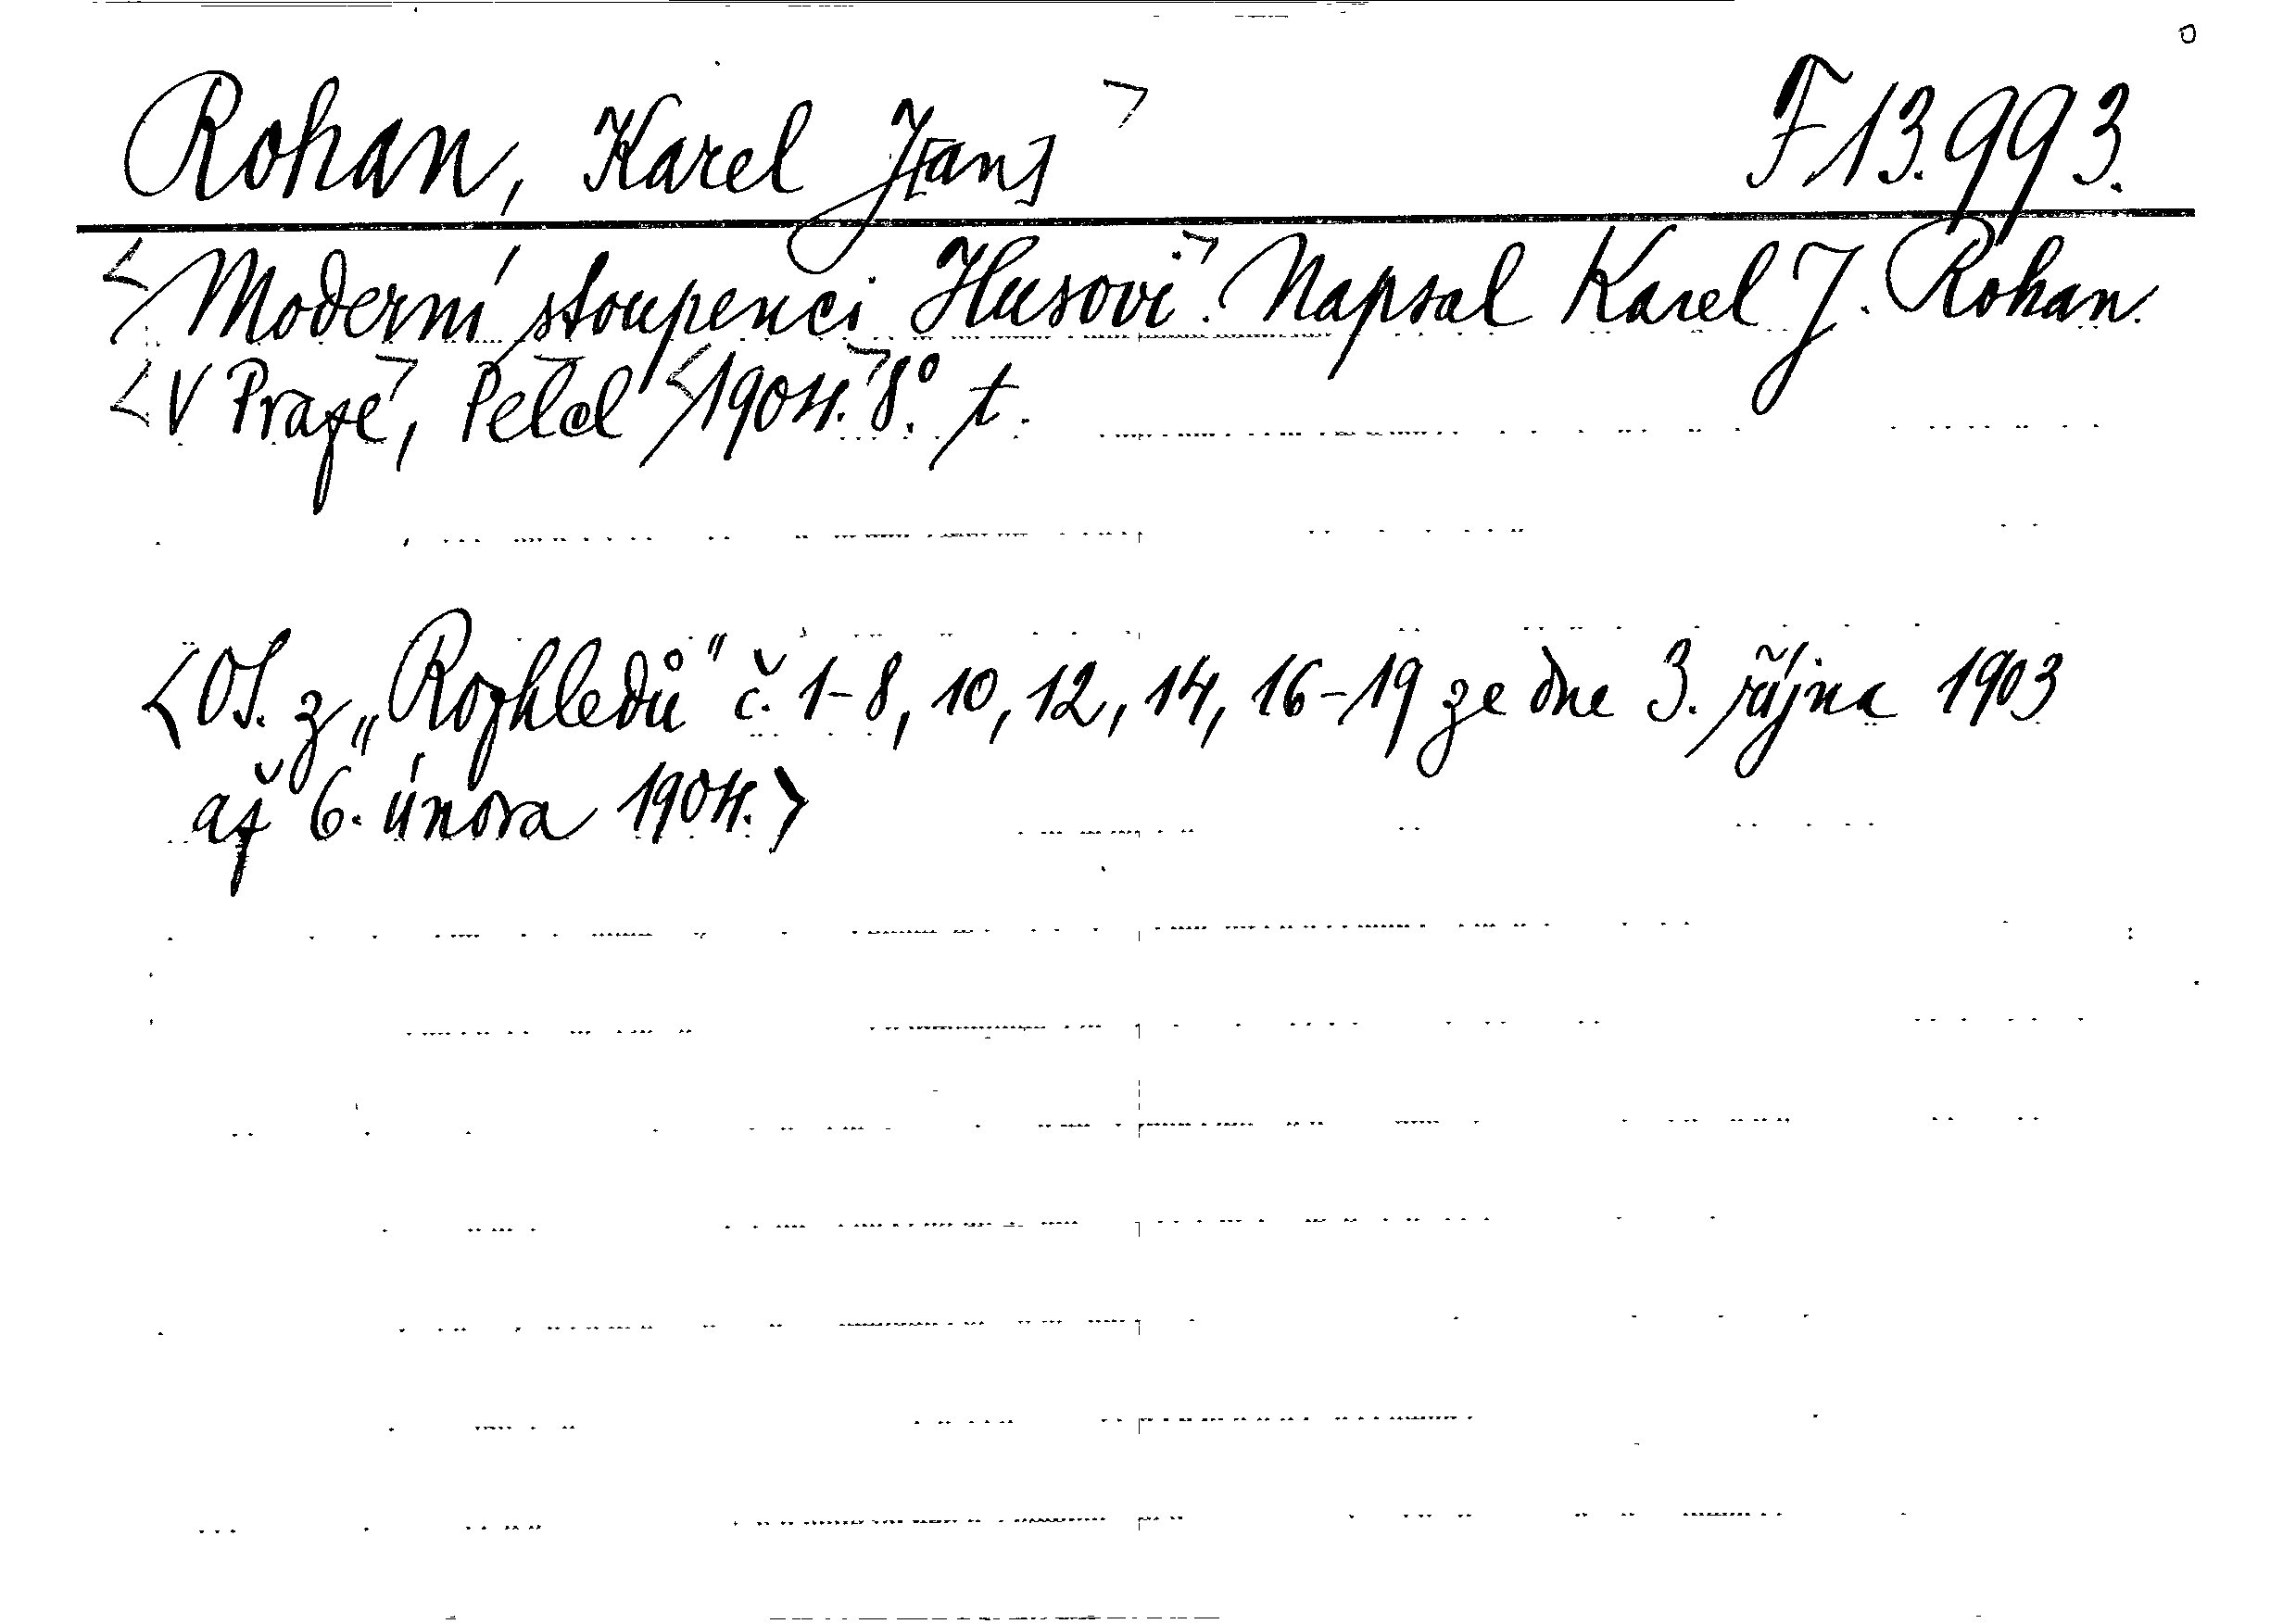 Rohan, Karel J[an] F 13.993.
Moderní stoupenci Husovi. Napsal Karel J. Rohan.
V Praze, Pelcl 1904. 8°. t.
<OS. z „Rozhledů" č. 1-8, 10, 12, 14, 16-19 ze dne 3. října 1903
až 6. února 1904.>